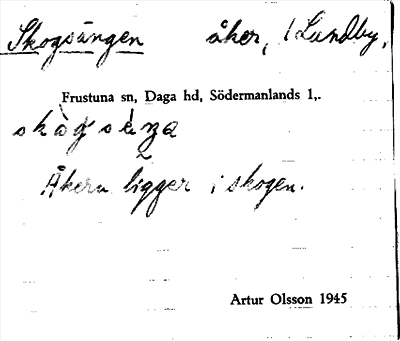 Skogsängen åker, i Lundby,
Frustuna sn, Daga hd, Södermanlands l,.
skògsèŋa
Åkern ligger i skogen.
Artur Olsson 1945